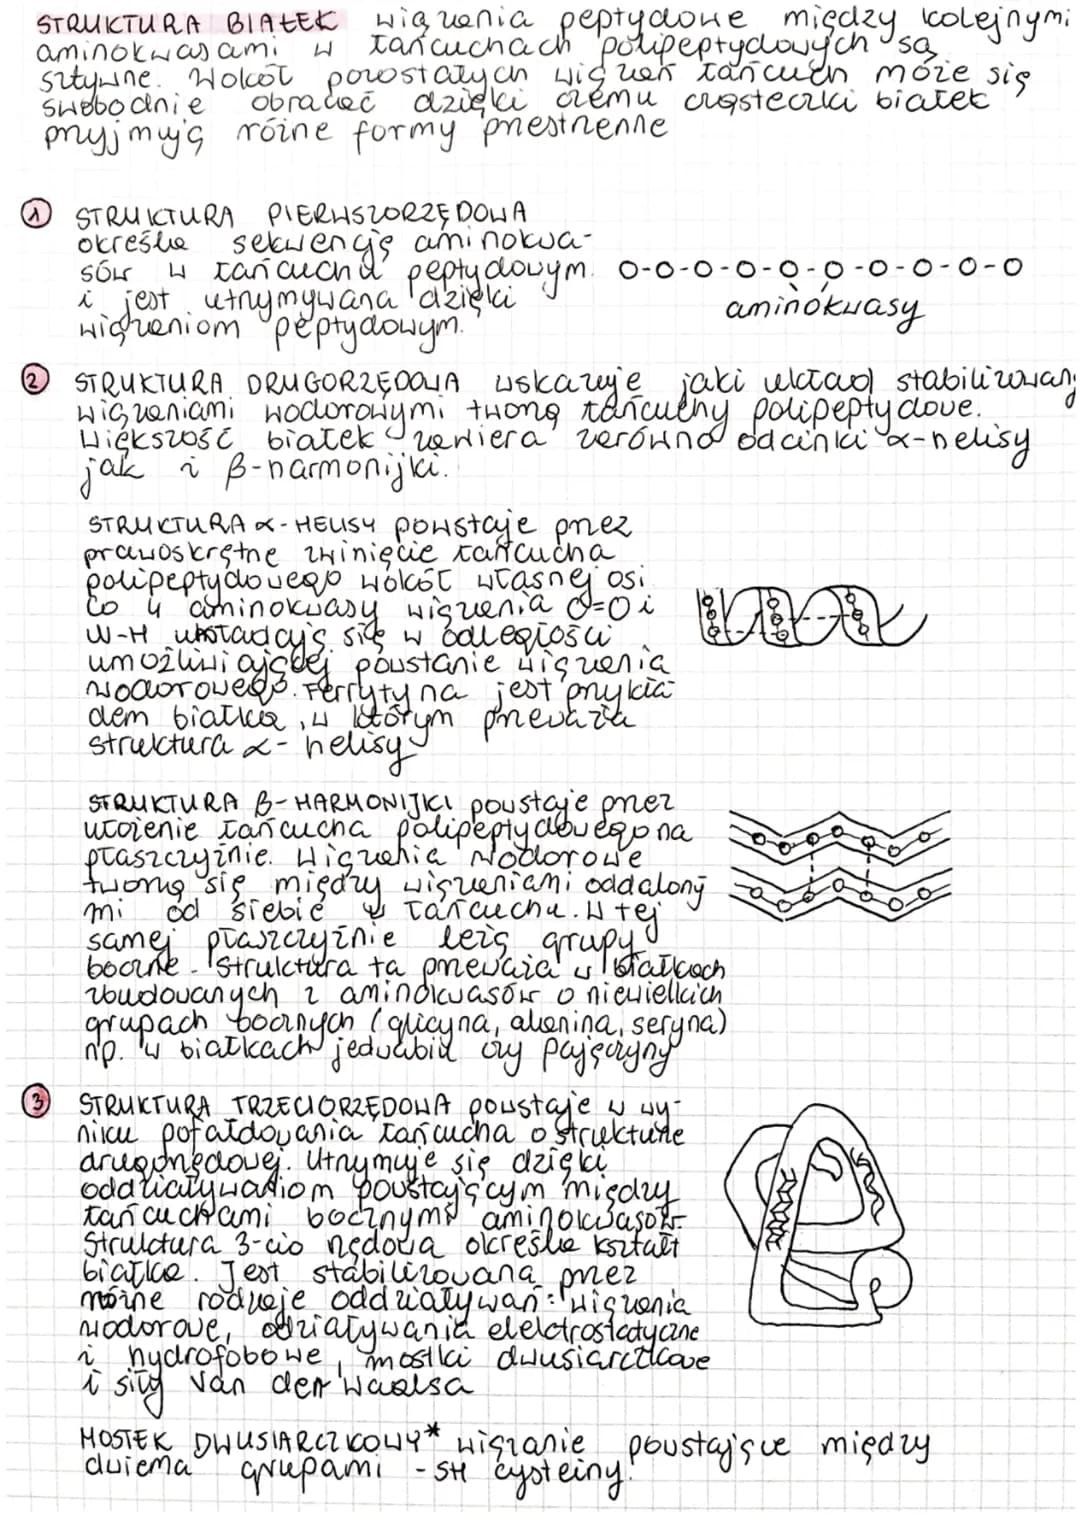 STRUKTURA BIAŁEK wiązania peptydowe między kolejnymi
aminokwasami w łańcuchach polipeptydowych są
sztywne. Wokół pozostałych wiązań łańcuch może się
swobodnie obracać dzięki czemu cząsteczki białek
przyjmują różne formy przestrzenne
1 STRUKTURA PIERWSZORZĘDOWA
określa sekwencję aminokwa-
sów w łańcuchu peptydowym.
i jest utrzymywana dzięki
wiązaniom peptydowym.
O-O-O-O-O-O-O-O-O-O-O
aminokwasy
2 STRUKTURA DRUGORZĘDOWA wskazuje jaki układ stabilizowany
wiązaniami wodorowymi tworzą łańcuchy polipeptydowe.
Większość białek zawiera zarówno odcinki α-helisy
jak i β-harmonijki.
STRUKTURA α-HELISY powstaje przez
prawoskrętne zwinięcie łańcucha
polipeptydowego wokół własnej osi
co 4 aminokwasy wiązania C=O i
W-H układają się w odległości
umożliwiającej powstanie wiązania
wodorowego. Ferrytyna jest przykła-
dem białka, w którym przeważa
struktura α-helisy
STRUKTURA β-HARMONIJKI powstaje przez
ułożenie łańcucha polipeptydowego na
płaszczyźnie. Wiązania Wodorowe
tworzą się między wiązaniami oddalony
mi od siebie w łańcuchu. W tej
samej płaszczyźnie leżą grupy
boczne. Struktura ta przeważa w białkach
zbudowanych z aminokwasów o niewielkich
grupach bocznych (glicyna, alanina, seryna)
np. w białkach jedwabiu czy pajęczyny
3 STRUKTURA TRZECIORZĘDOWA powstaje w wy-
niku pofałdowania łańcucha o strukturze
drugorzędowej. Utrzymuje się dzięki
oddziaływaniom powstającym między
łańcuchami bocznymi aminokwasów.
Struktura 3-cio rzędowa określa kształt
białka. Jest stabilizowana przez
różne rodzaje oddziaływań: wiązania
wodorowe, odziaływania elektrostatyczne
i hydrofobowe, mostki dwusiarczkowe
i siły Van der Waalsa
MOSTEK DWUSIARCZKOWY* wiązanie powstające między
dwiema grupami -SH cysteiny.